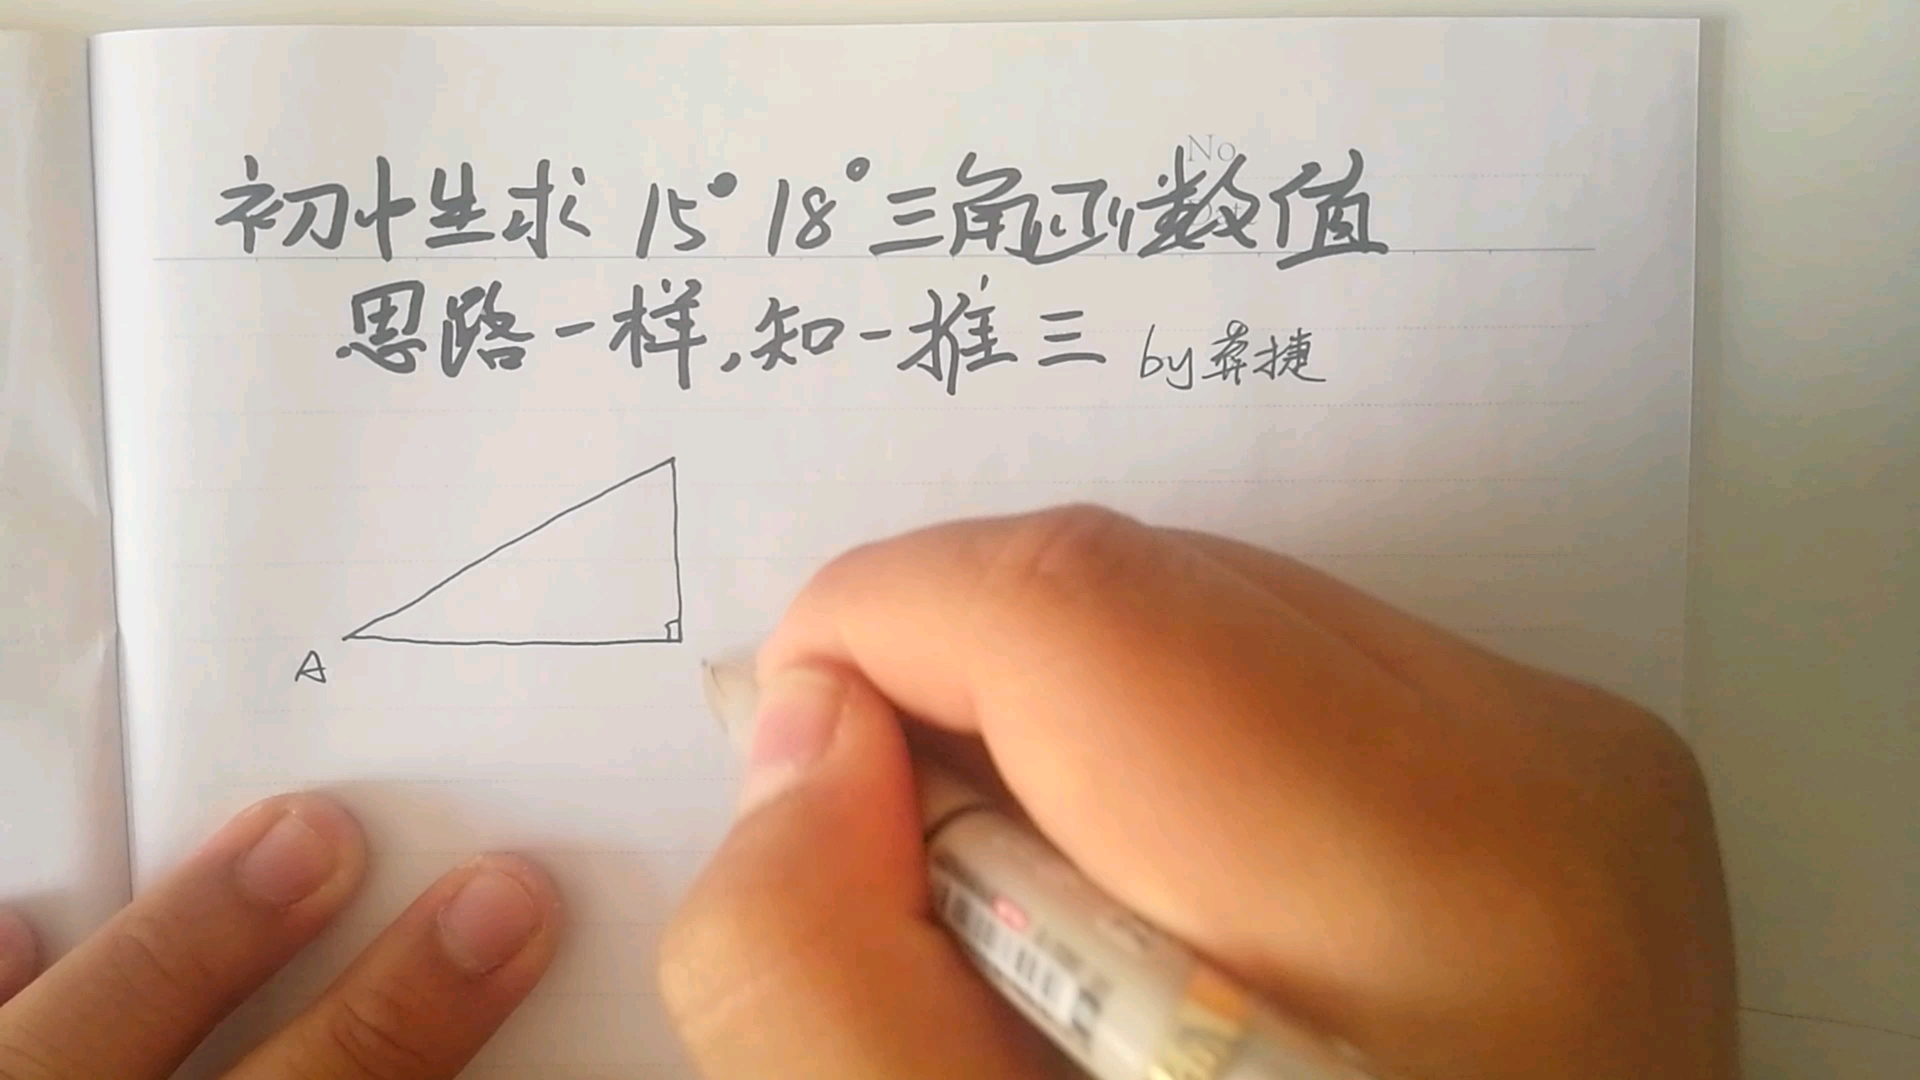 初中生求 15° 18° 三角函数值
No
思路一样,知一推三 by 龚捷
A